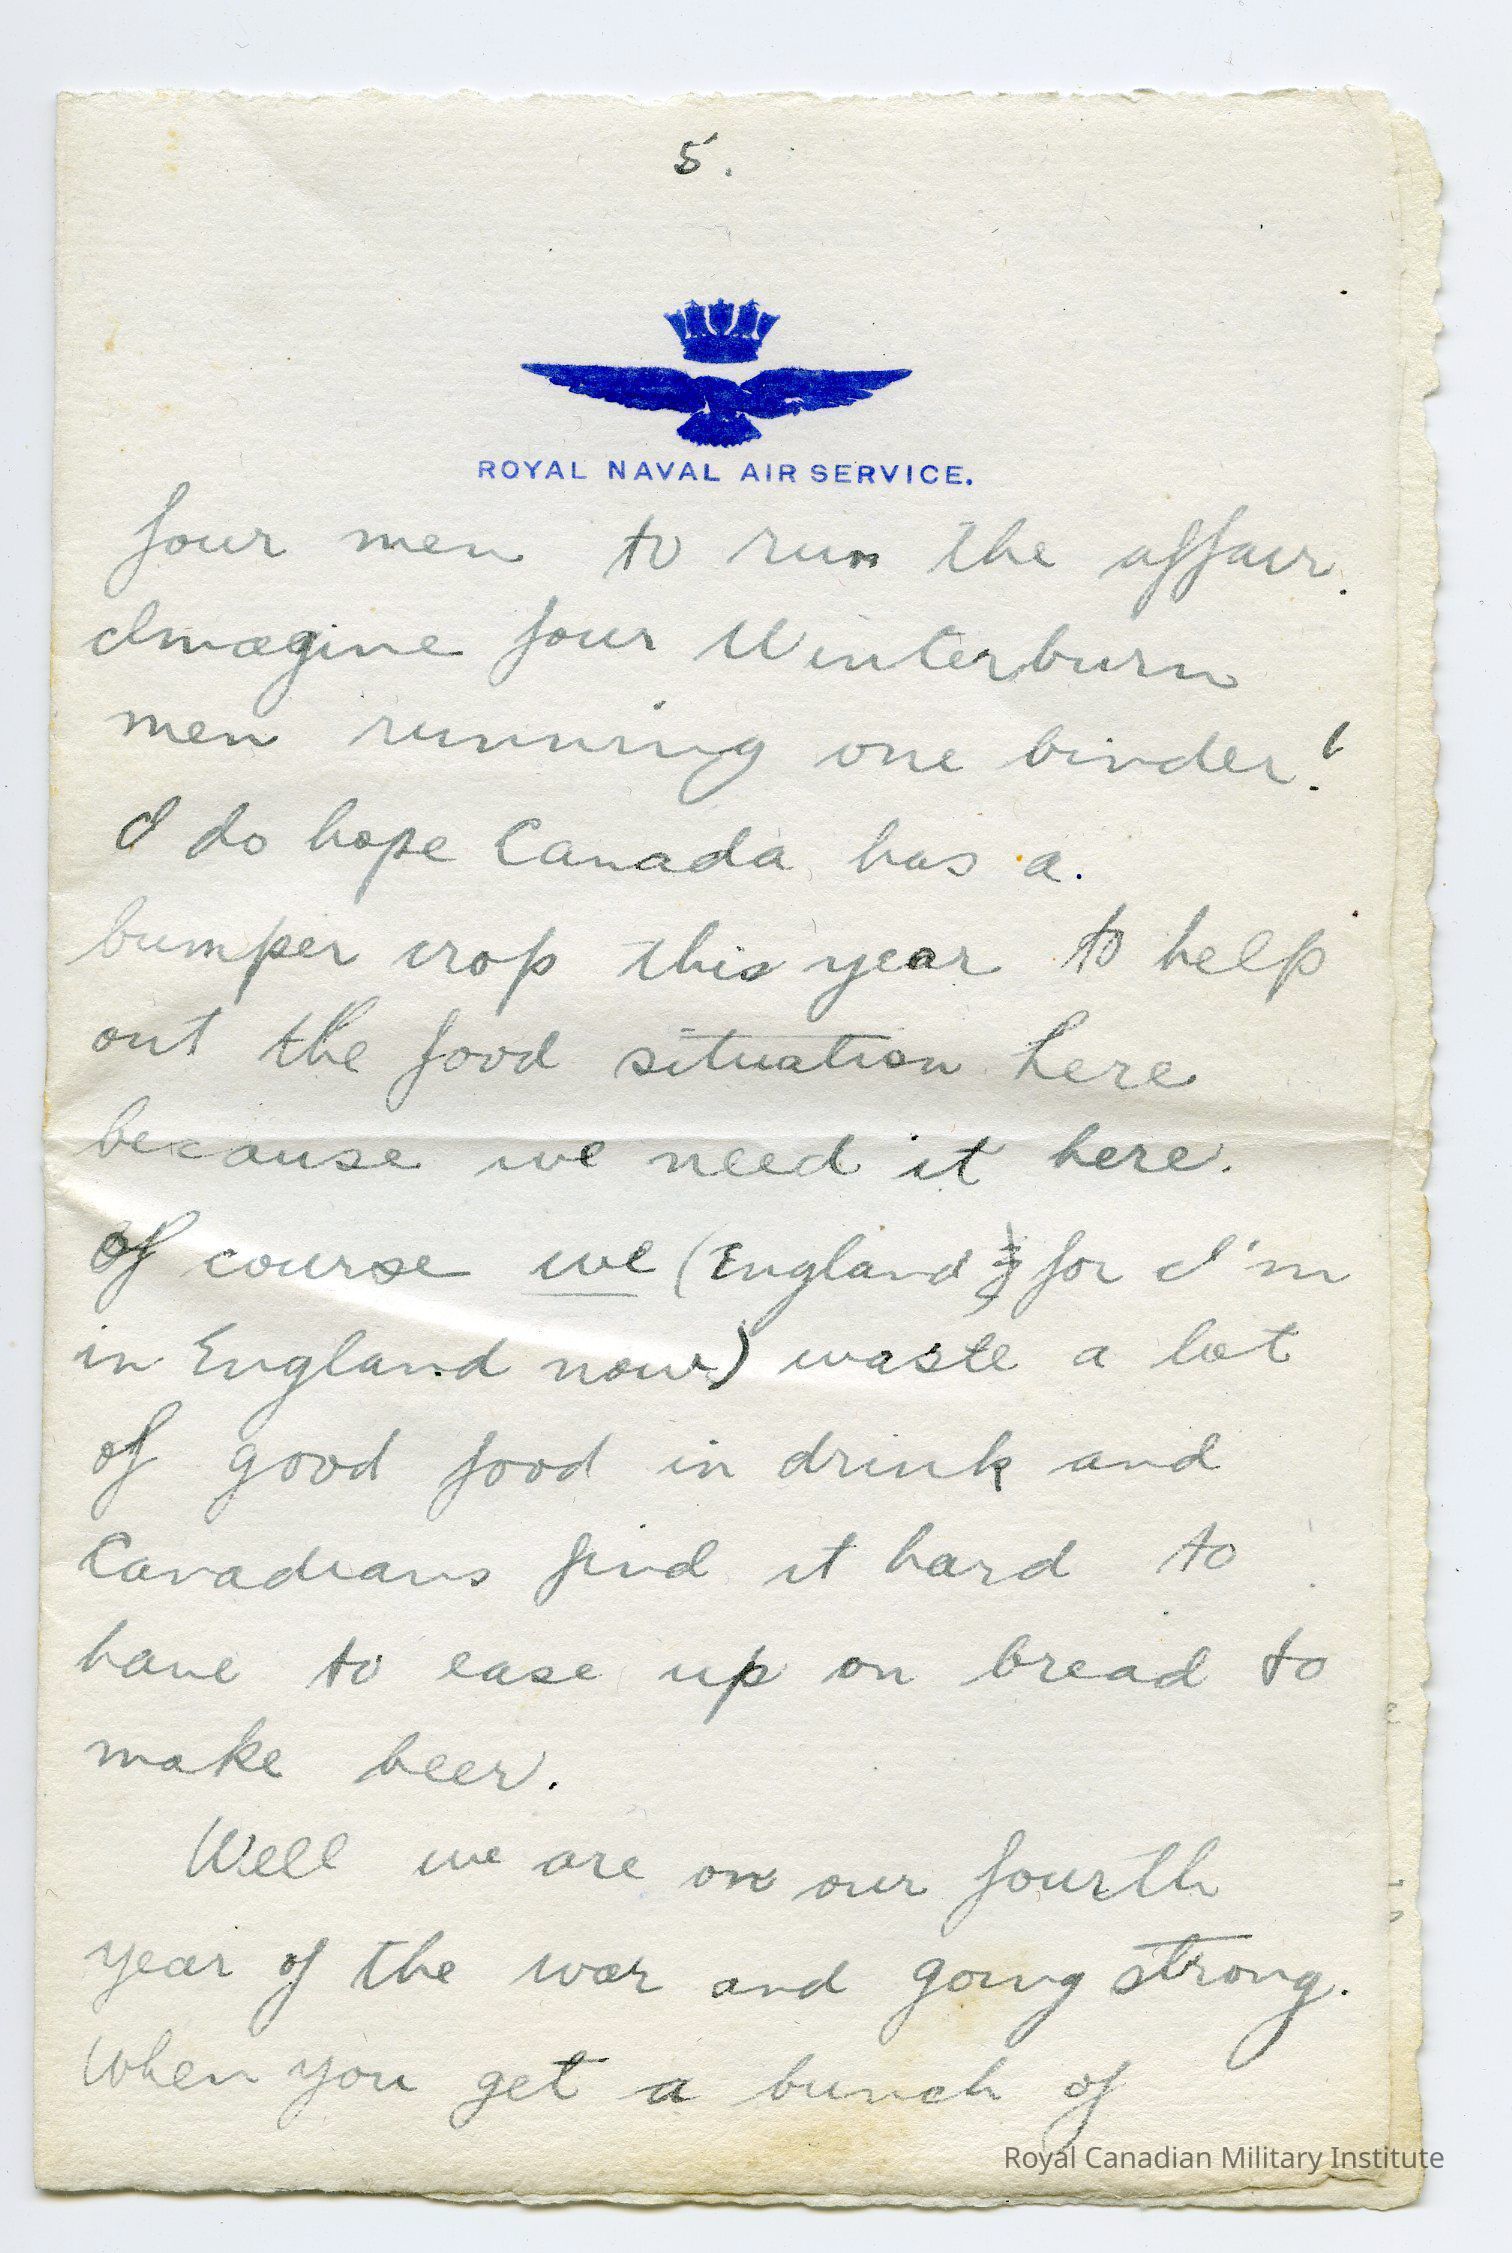 5.
ROYAL NAVAL AIR SERVICE.
four men to run the affair.
Imagine four Winterburn
men running one binder!
I do hope Canada has a
bumper crop this year to help
out the food situation here
because we need it here.
Of course we (England for I'm
in England now) waste a lot
of good food in drink and
Canadians find it hard to
have to ease up on bread to
make beer.
Well we are on our fourth
year of the war and going strong.
When you get a bunch of
Royal Canadian Military Institute